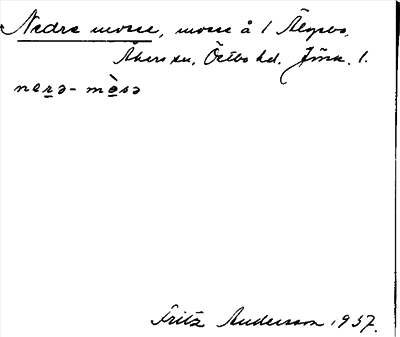 Nedre mosse, mosse å 1 Älgsbo,
Åkers sn, Östbo hd. Jönk. l.
nerə- mòsə
Fritz Andersson 1937.